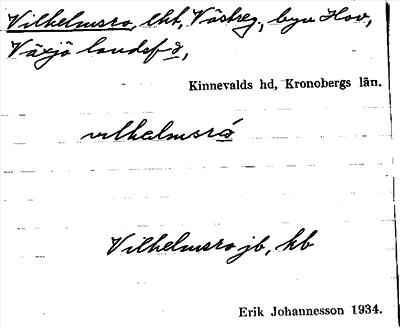 Vilhelmsro, lht, Västreg, byn Hov,
Växjö landsf-d,
Kinnevalds hd, Kronobergs län.
vilhelmsró
Vilhelmsro jb, kb
Erik Johannesson 1934.